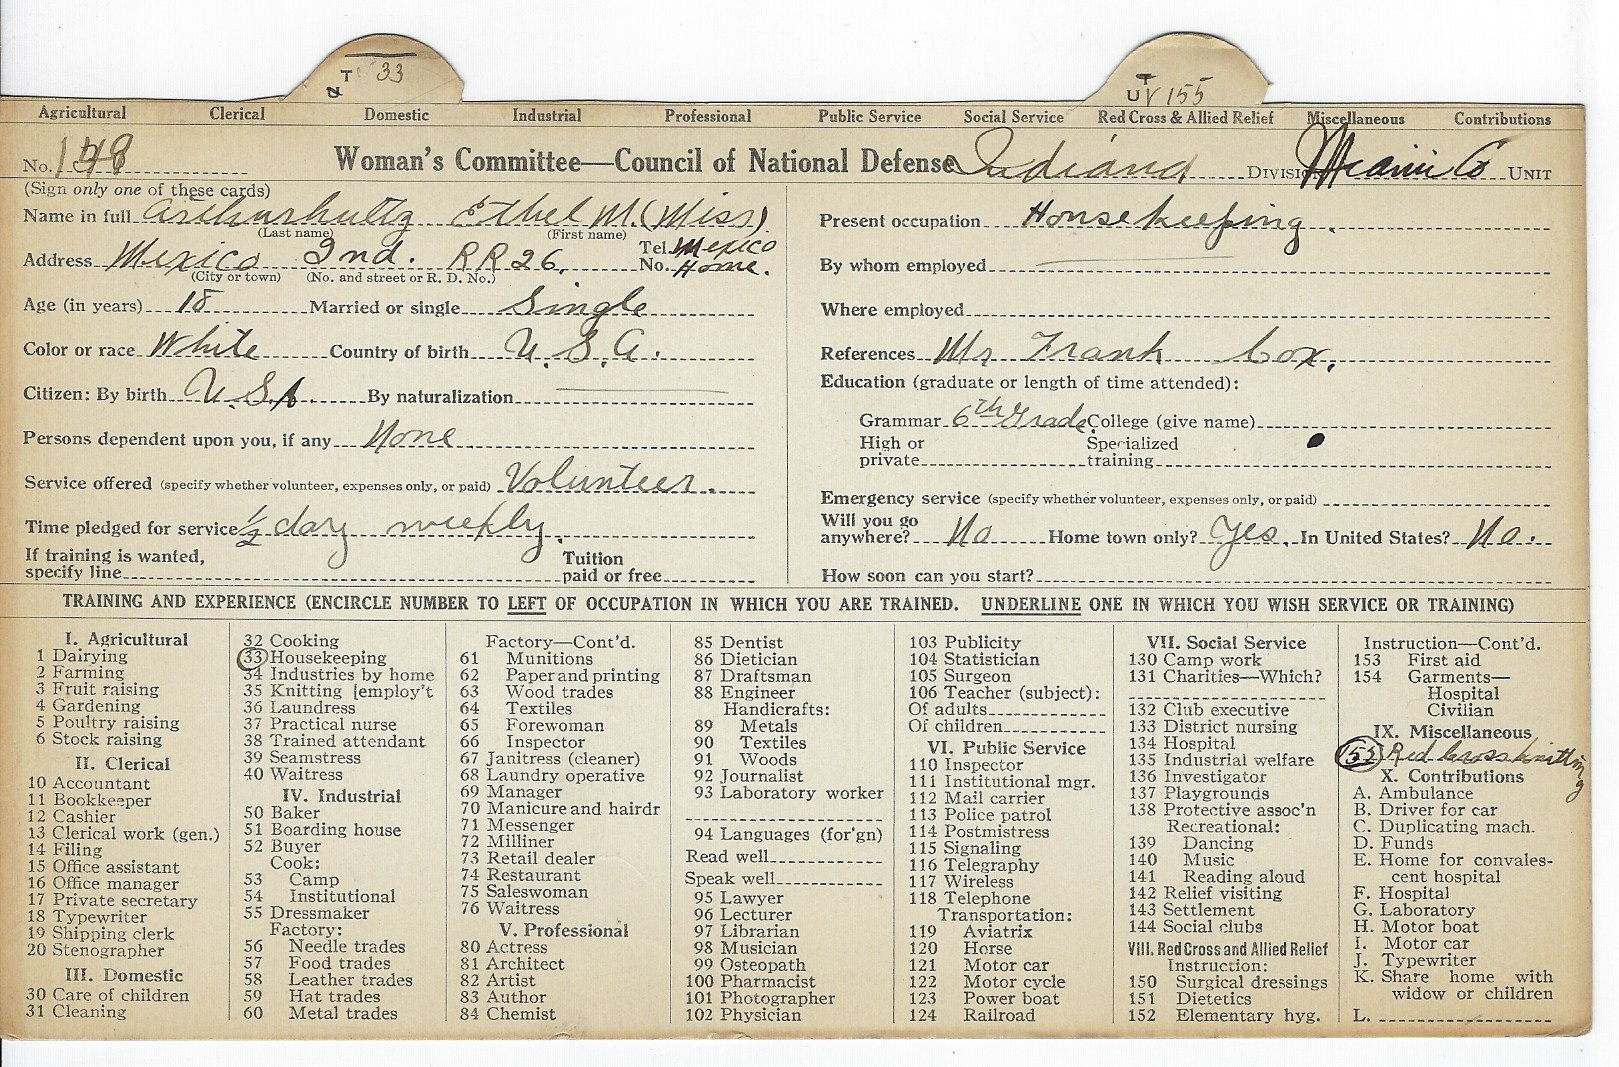 T 33
T
U V 155
Agricultural Clerical Domestic Industrial Professional Public Service Social Service Red Cross & Allied Relief Miscellaneous Contributions
No. 148 Woman's Committee—Council of National Defense Indiana DIVISION Miami Co UNIT
(Sign only one of these cards)
Name in full Arthurhultz Ethel M. (Miss)
(Last name) (First name)
Address Mexico Ind. RR 26. Tel. No. Mexico Home.
(City or town) (No. and street or R. D. No.)
Age (in years) 18 Married or single Single
Color or race White Country of birth U.S.A.
Citizen: By birth U.S.A. By naturalization
Persons dependent upon you, if any None
Service offered (specify whether volunteer, expenses only, or paid) Volunteer.
Time pledged for service 1/2 day weekly.
If training is wanted,
specify line Tuition paid or free
Present occupation Housekeeping.
By whom employed
Where employed
References Mr Frank Cox.
Education (graduate or length of time attended):
Grammar 6th Grade College (give name)
High or private Specialized training
Emergency service (specify whether volunteer, expenses only, or paid)
Will you go anywhere? No Home town only? Yes. In United States? No.
How soon can you start?
TRAINING AND EXPERIENCE (ENCIRCLE NUMBER TO LEFT OF OCCUPATION IN WHICH YOU ARE TRAINED. UNDERLINE ONE IN WHICH YOU WISH SERVICE OR TRAINING)
I. Agricultural
1 Dairying
2 Farming
3 Fruit raising
4 Gardening
5 Poultry raising
6 Stock raising
II. Clerical
10 Accountant
11 Bookkeeper
12 Cashier
13 Clerical work (gen.)
14 Filing
15 Office assistant
16 Office manager
17 Private secretary
18 Typewriter
19 Shipping clerk
20 Stenographer
III. Domestic
30 Care of children
31 Cleaning
32 Cooking
33 Housekeeping
34 Industries by home
35 Knitting [employ't
36 Laundress
37 Practical nurse
38 Trained attendant
39 Seamstress
40 Waitress
IV. Industrial
50 Baker
51 Boarding house
52 Buyer
Cook:
53 Camp
54 Institutional
55 Dressmaker
Factory:
56 Needle trades
57 Food trades
58 Leather trades
59 Hat trades
60 Metal trades
Factory—Cont'd.
61 Munitions
62 Paper and printing
63 Wood trades
64 Textiles
65 Forewoman
66 Inspector
67 Janitress (cleaner)
68 Laundry operative
69 Manager
70 Manicure and hairdr
71 Messenger
72 Milliner
73 Retail dealer
74 Restaurant
75 Saleswoman
76 Waitress
V. Professional
80 Actress
81 Architect
82 Artist
83 Author
84 Chemist
85 Dentist
86 Dietician
87 Draftsman
88 Engineer
Handicrafts:
89 Metals
90 Textiles
91 Woods
92 Journalist
93 Laboratory worker
94 Languages (for'gn)
Read well
Speak well
95 Lawyer
96 Lecturer
97 Librarian
98 Musician
99 Osteopath
100 Pharmacist
101 Photographer
102 Physician
103 Publicity
104 Statistician
105 Surgeon
106 Teacher (subject):
Of adults
Of children
VI. Public Service
110 Inspector
111 Institutional mgr.
112 Mail carrier
113 Police patrol
114 Postmistress
115 Signaling
116 Telegraphy
117 Wireless
118 Telephone
Transportation:
119 Aviatrix
120 Horse
121 Motor car
122 Motor cycle
123 Power boat
124 Railroad
VII. Social Service
130 Camp work
131 Charities—Which?
132 Club executive
133 District nursing
134 Hospital
135 Industrial welfare
136 Investigator
137 Playgrounds
138 Protective assoc'n
Recreational:
139 Dancing
140 Music
141 Reading aloud
142 Relief visiting
143 Settlement
144 Social clubs
VIII. Red Cross and Allied Relief
Instruction:
150 Surgical dressings
151 Dietetics
152 Elementary hyg.
Instruction—Cont'd.
153 First aid
154 Garments—
Hospital
Civilian
IX. Miscellaneous
155 Red Cross knitting
X. Contributions
A. Ambulance
B. Driver for car
C. Duplicating mach.
D. Funds
E. Home for convales-
cent hospital
F. Hospital
G. Laboratory
H. Motor boat
I. Motor car
J. Typewriter
K. Share home with
widow or children
L.